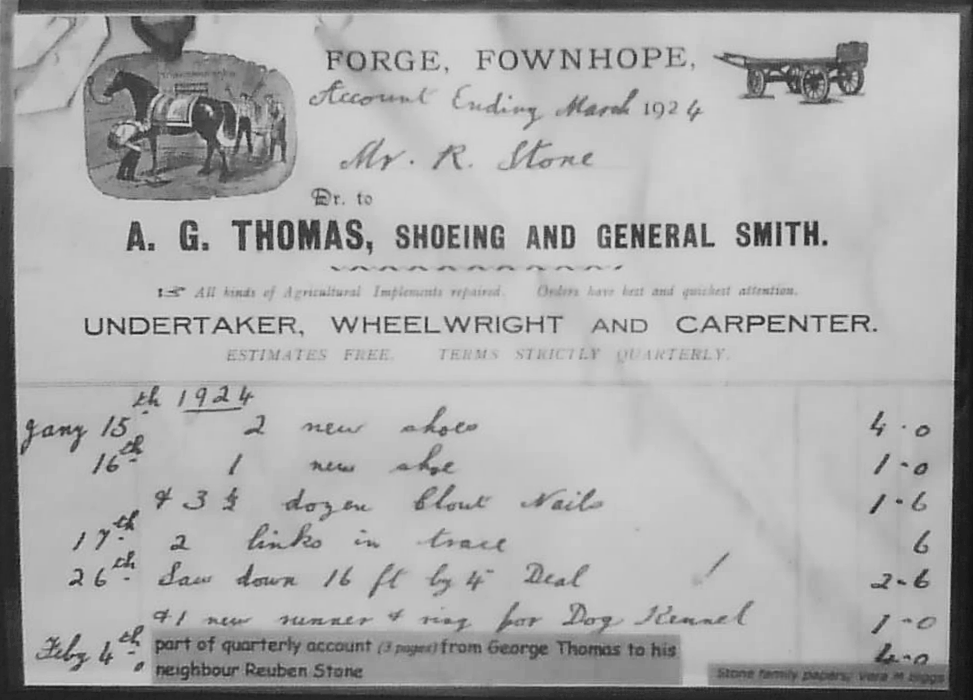 FORGE, FOWNHOPE,
Account Ending March 1924
Mr. R. Stone
Dr. to
A. G. THOMAS, SHOEING AND GENERAL SMITH.
All kinds of Agricultural Implements repaired. Orders have best and quickest attention.
UNDERTAKER, WHEELWRIGHT AND CARPENTER.
ESTIMATES FREE. TERMS STRICTLY QUARTERLY.
1924
Jany 15th 2 new shoes 4-0
16th 1 new shoe 1-0
& 3 ½ dozen Clout Nails 1-6
17th 2 links in trace 6
26th Saw down 16 ft by 4" Deal 2-6
& 1 new runner & ring for Dog Kennel 1-0
Feby 4th 4-0
part of quarterly account (3 pages) from George Thomas to his
neighbour Reuben Stone
Stone family papers, Vera M Biggs